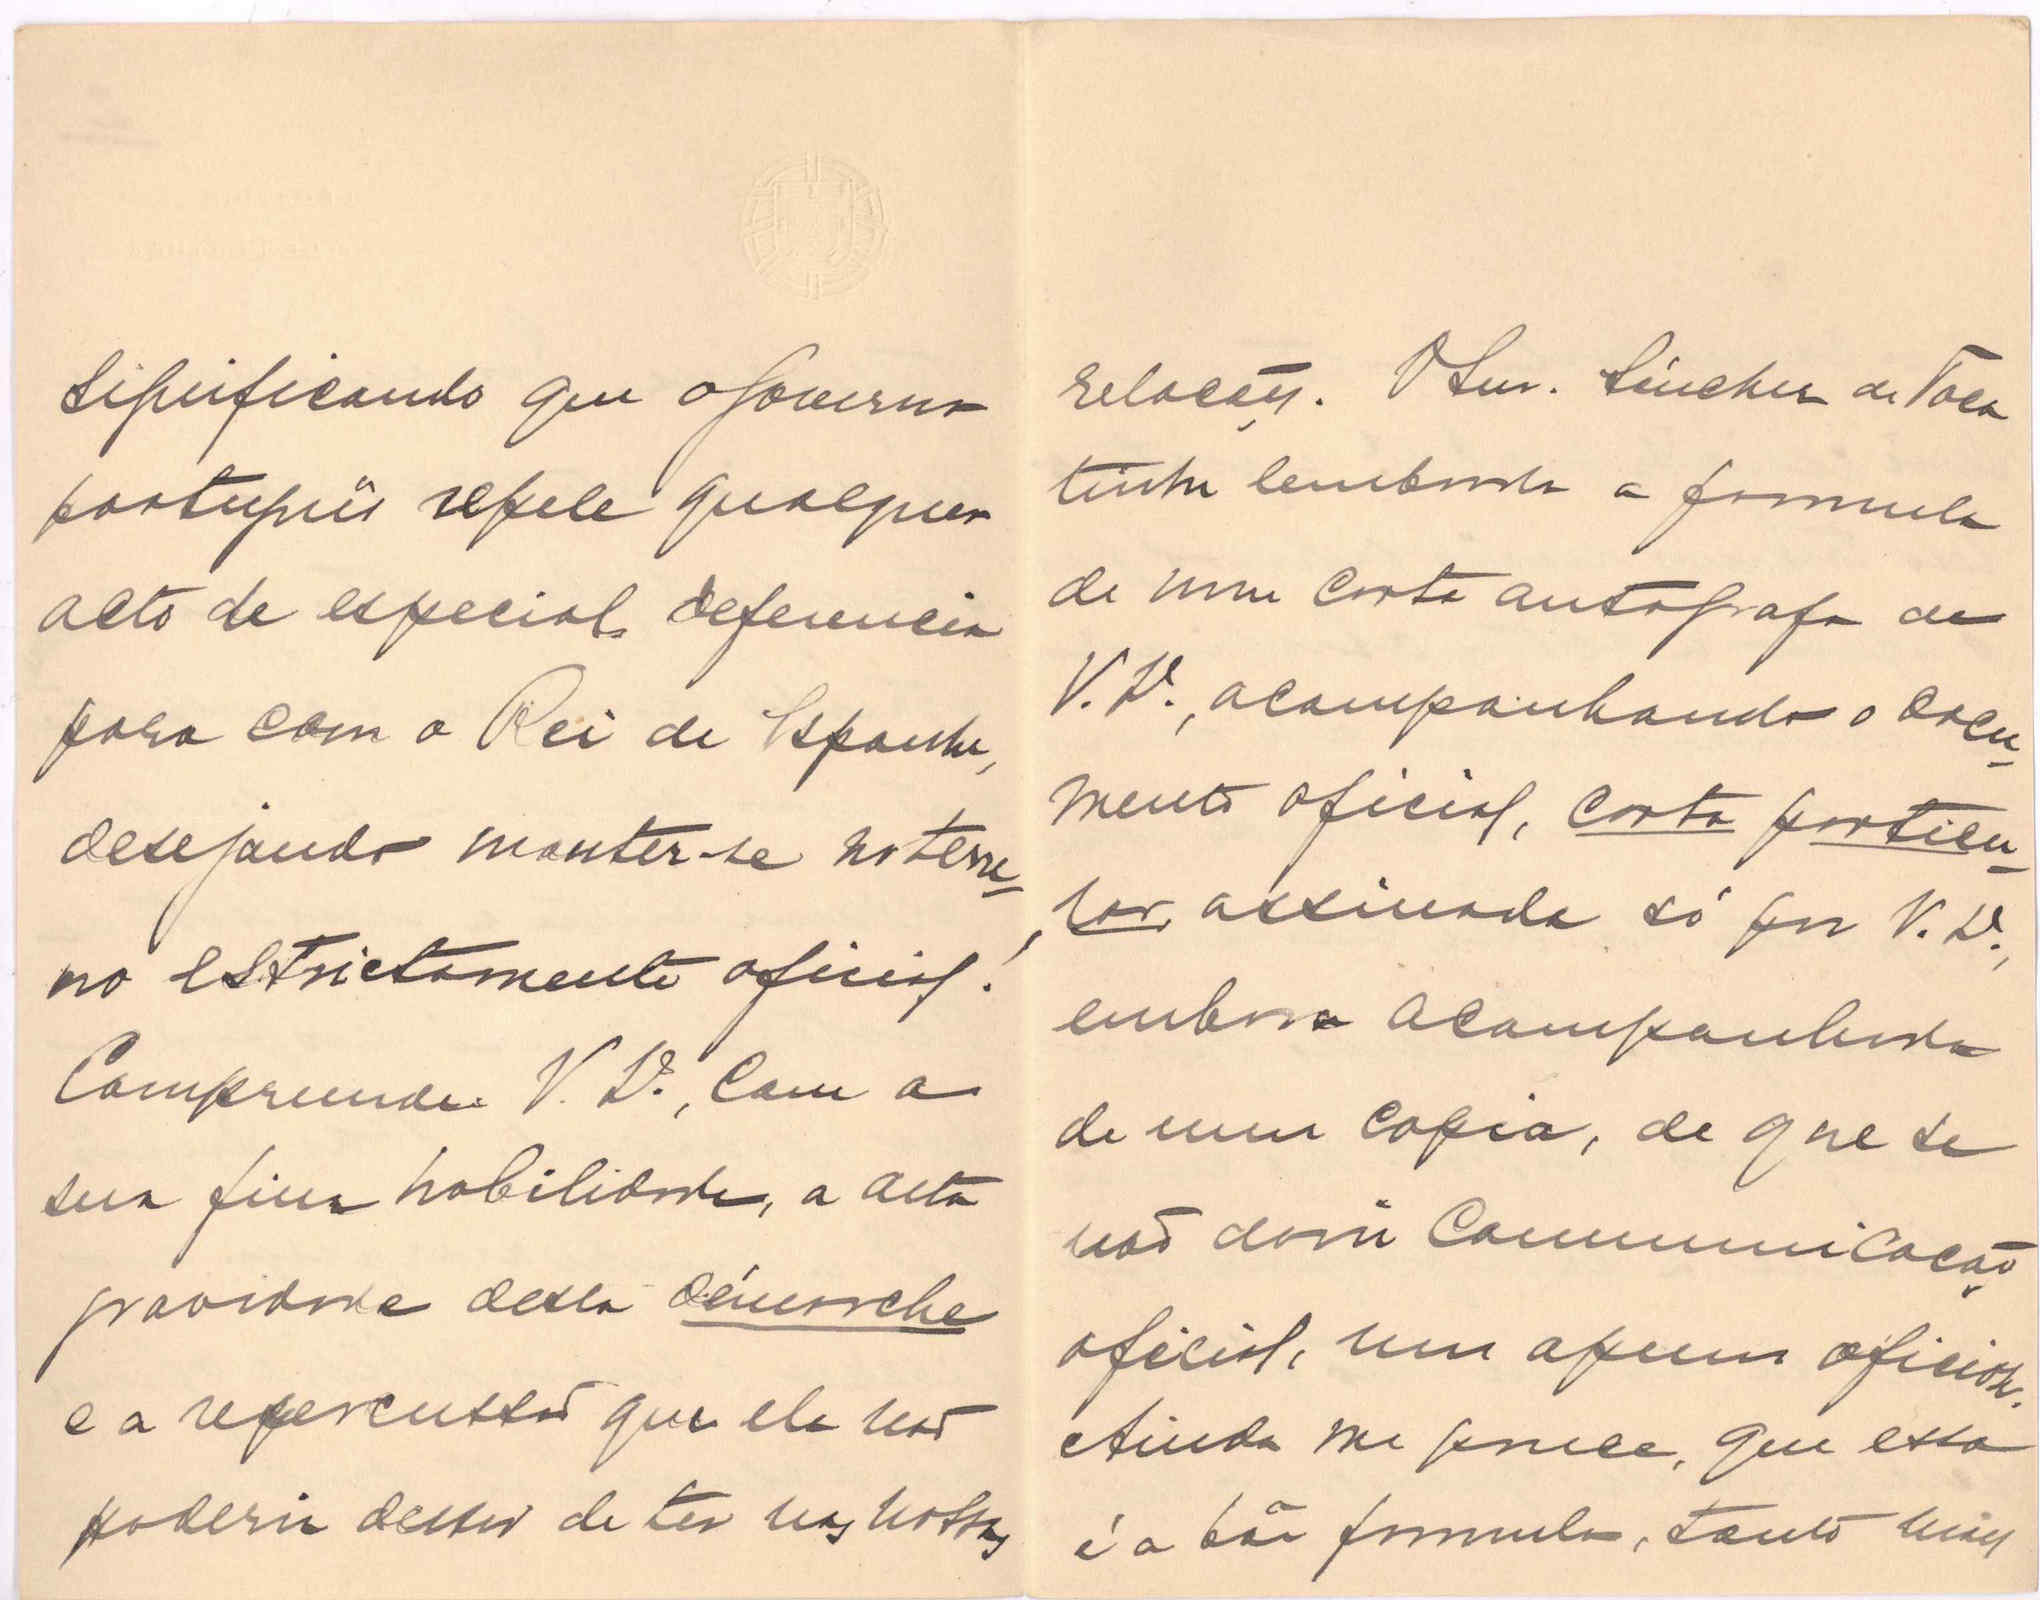 significando que o Governo
português repele qualquer
acto de especial deferencia
para com o Rei de Espanha,
desejando manter-se no terre-
no estrictamente oficial!
Comprende V. Ex.ª, com a
sua fina habilidade, a alta
gravidade desta démarche
e a repercussão que ela não
poderia deixar de ter nas nossas
relações. O Snr. Sanchez de Toca
tinha lembrado a formula
de uma carta autografa de
V. Ex.ª, acompanhando o docu-
mento oficial, carta particu-
lar, assinada só por V. Ex.ª,
embora acompanhada
de uma copia, de que se
não daria communicação
oficial, mas apenas oficiosa.
Ainda me parece, que essa
é a bôa formula, tanto mais